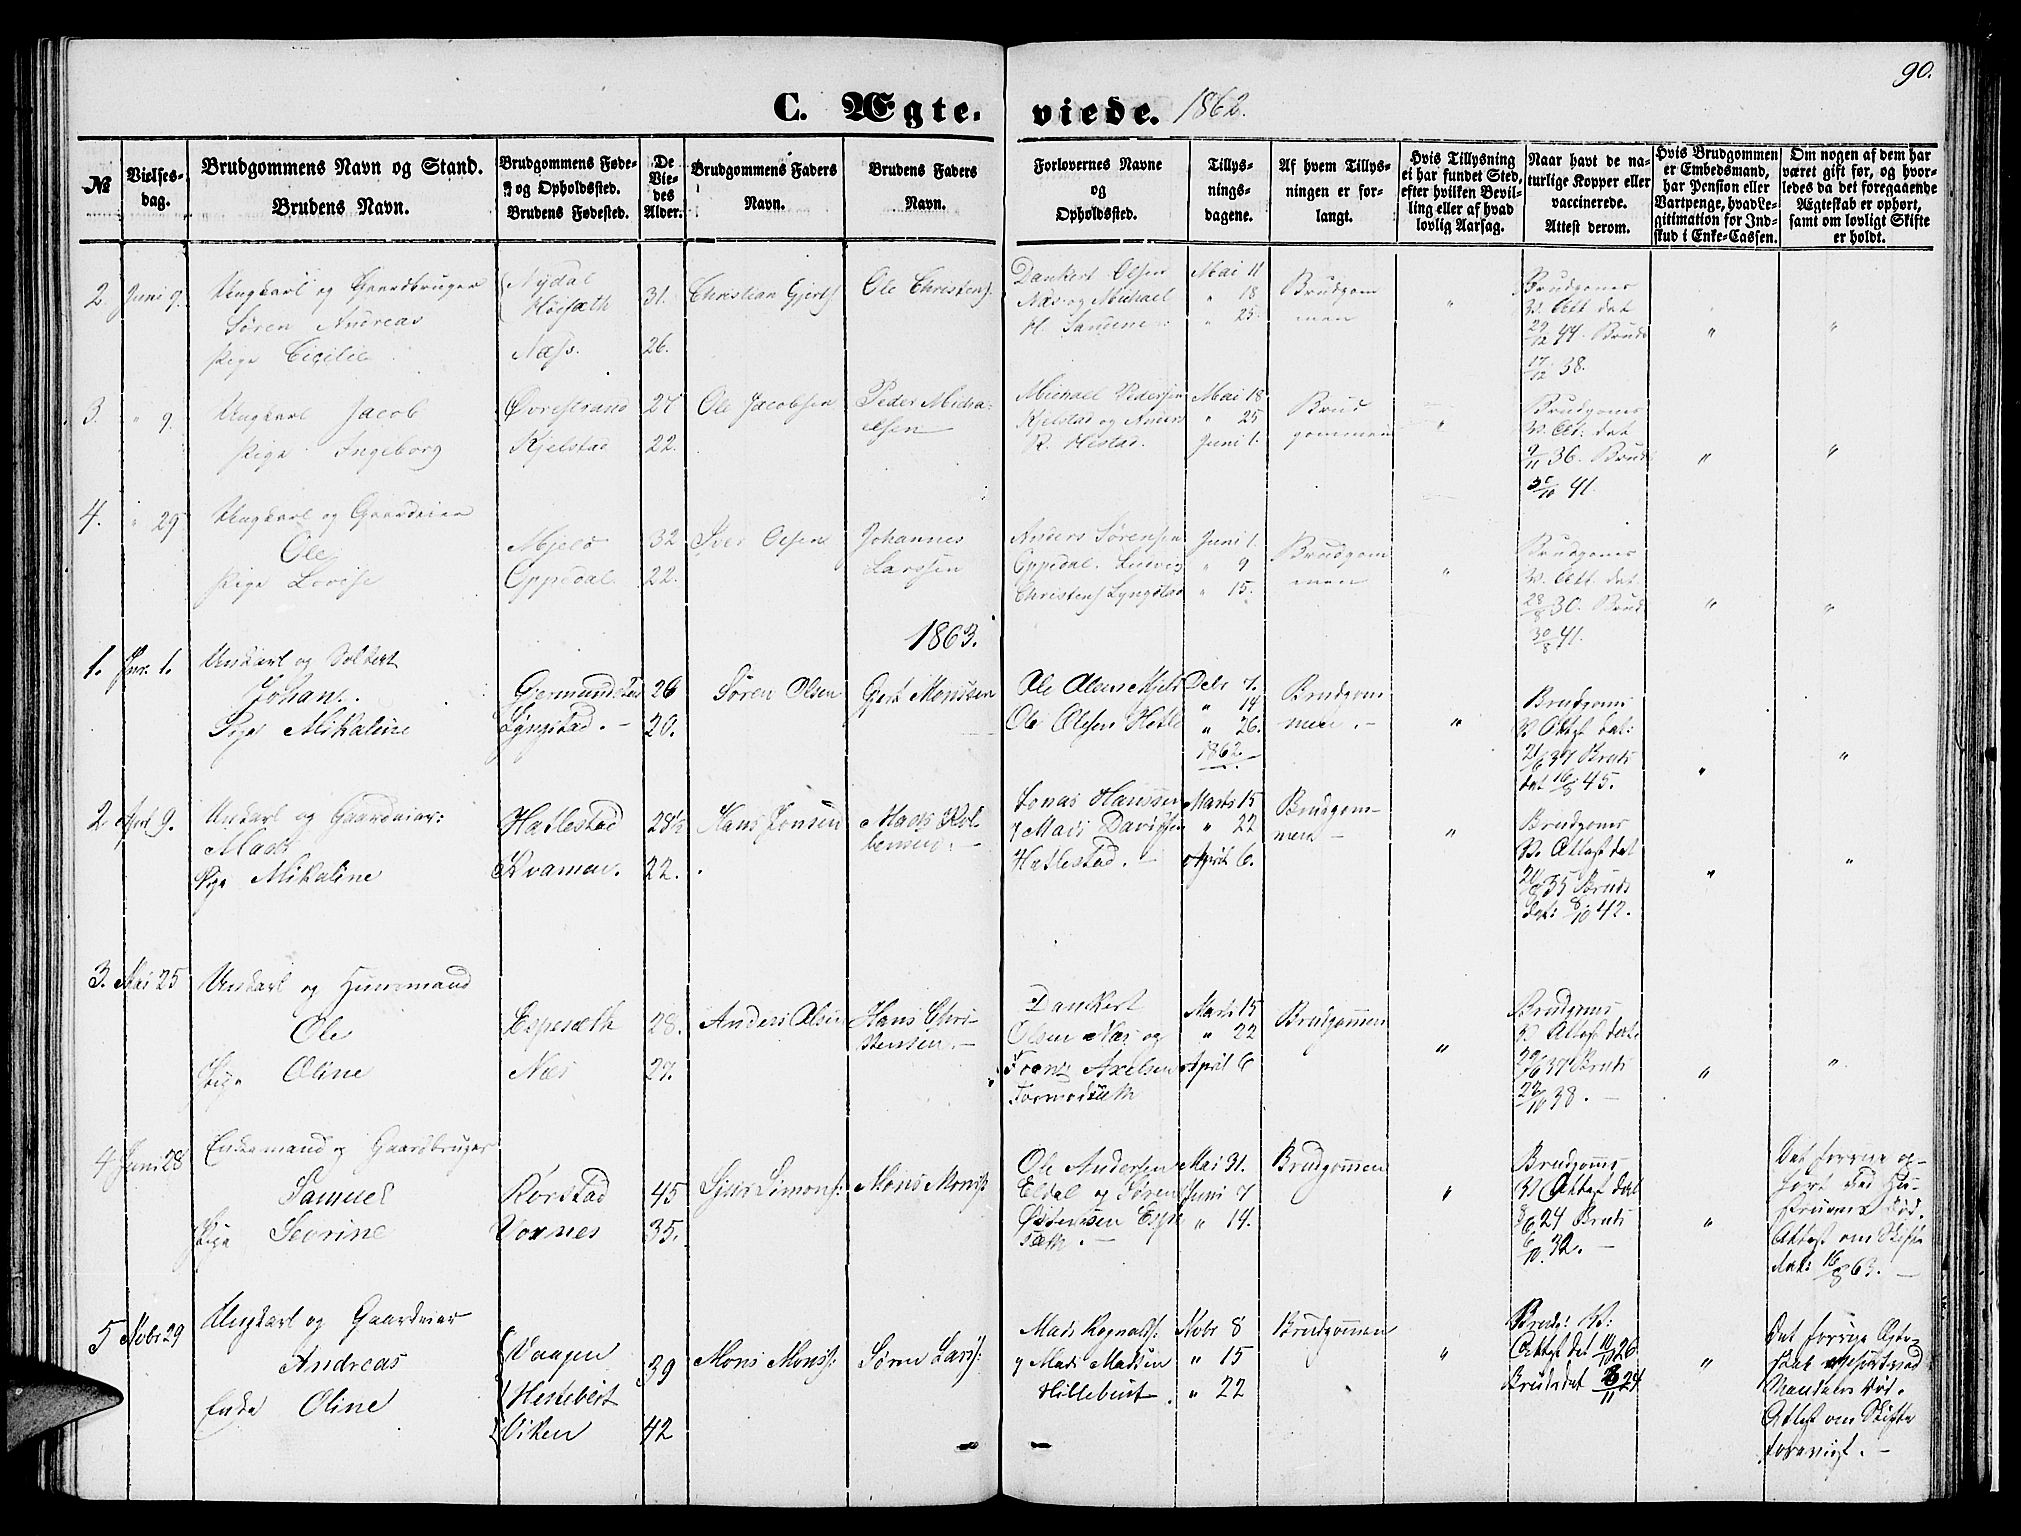 90.
C. Ægte-
viede. 1862.
№
Vielses-
dag.
Brudgommens Navn og Stand.
Brudens Navn.
Brudgommens Føde-
og Opholdssted.
Brudens Fødested.
De
Vie-
des
Alder.
Brudgommens Faders
Navn.
Brudens Faders
Navn.
Forlovernes Navne
og
Opholdssted.
Tillys-
nings-
dagene.
Af hvem Tillys-
ningen er for-
langt.
Hvis Tillysning
ei har fundet Sted,
efter hvilken Bevil-
ling eller af hvad
lovlig Aarsag.
Naar havt de na-
turlige Kopper eller
vaccinerede.
Attest derom.
Hvis Brudgommen
er Embedsmand,
har Pension eller
Vartpenge, hvad Le-
gitimation for Ind-
skud i Enke-Cassen.
Om nogen af dem har
været gift før, og hvor-
ledes da det foregaaende
Ægteskab er ophørt,
samt om lovligt Skifte
er holdt.
2. Juni 9.
Ungkarl og Gaardbruger
Søren Andreas
Pige Cicilie
Nydal
Høisæth
Næss.
31.
26.
Christian Gjerts
Ole Christens.
Dankert Olsen
Næs og Michael
H. Sandene
Mai 11
" 18
" 25.
Brudgom
men
"
Brudgoms
V. Att. dat
29/12 44. Bruds
17/12 38.
"
"
3. " 9.
Ungkarl Jacob
Pige Ingeborg
Øvrestrand
Kjelstad
27
22.
Ole Jacobsen
Peder Micha-
elsen
Michael Pedersen
Kjelstad og Anders
R. Hestad.
Mai 18
" 25
Juni 1.
Brud
gommen
"
Brudgoms
V. Att: dat
9/11 36. Bruds
41.
"
"
4. " 29
Ungkarl og Gaardeier
Ole
Pige Lovise
Mjelø
Oppedal.
32
22.
Iver Olsen
Johannes
Larssen
Anders Sørensen
Oppedal. Ludvig
Christens Lyngstad
Juni 1.
" 9
" 15.
Brudgom
men
"
Brudgoms
V. Att. dat
28/8 30. Bruds
30/8 41.
"
"
1863.
1. Jnr. 1.
Unkarl og Soldat
Johan.
Pige Mikaline
Germundstad
Lyngstad. -
26
20.
Søren Olsen
Gjert Monssen
Ole Olsen Mjels
Ole Olssen Hatle
Debr 7.
" 14
" 26.
1862. -
Brudgom
men. -
"
Brudgoms
V. Attest dat:
21/6 37 Bruds
dat 45.
"
"
2. April 9.
Unkarl og Gaardeier:
Mads
Pige Mikaline
Hatlestad
Kvamen.
28½
22.
Hans Jonsen
Mads Kol-
bensen. -
Jonas Hanssen
& Mads Davidsen
Hatlestad. -
Marts 15
" 22
April 6.
Brudgom-
men -
"
Brudgoms
V. Attest dat
35 Bruds
dat: 8/10 42.
"
"
3. Mai 25
Unkarl og Huusmand
Ole
Pige Oline
Espesæth
Næs
28.
27.
Anders Olsen
Hans Chri-
stensen. -
Danckert
Olsen Næs og
Frantz Axelsen
Tormodsæth
Marts 15
" 22
April 6
Brudgommen
"
Brudgoms
V Attest dat:
37 Bruds
22/10 38. -
"
"
4 Juni 28
Enkemand og Gaardbruger
Samuel
Pige Sevrine
Rørstad
Vornes
45
35.
Sjur Simons:
Mons Mons:
Ole Andersen
Eldal og Søren
Østensen Espe
sæth. -
Mai 31.
Juni 7
" 14.
Brudgommen
"
Brudgoms
V Attest dat
24 Bruds
6/10. 32. -
"
Det forrige op-
hørt ved Hu-
struens Død.
Attest om Skifte
dat: 16/6 63. -
5 Nobr 29
Ungkarl og Gaardeier
Andreas
Enke Oline
Vaagen
Hestebeit
Viken
39
42
Mons Mons:
Søren Lars:
Mads Rognalds:
& Mads Madsen
Hillebust.
Nobr 8
" 15
" 22
Brudgommen
"
Bruds: V:
Attest dat 11/10 26
Bruds dat 24
"
Det forrige Ægte-
skab ophørt ved
Mandens Død.
Attest om Skifte
forevist. -